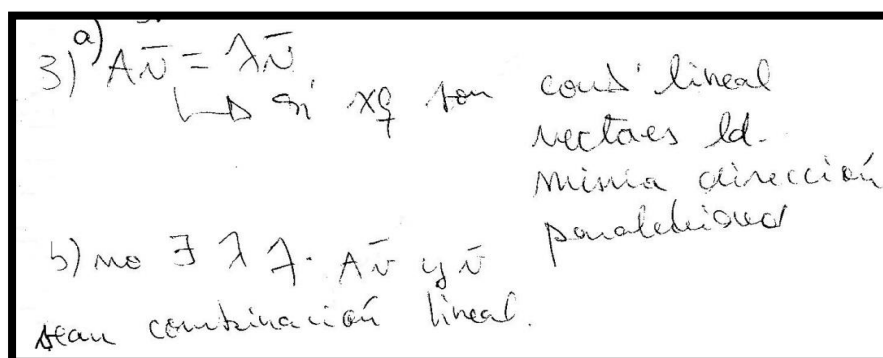 3) a) Av̄ = λv̄
↳ si xq son comb' lineal
vectores ld.
misma dirección
b) no ∃ λ / Av̄ y v̄
sean combinación lineal.